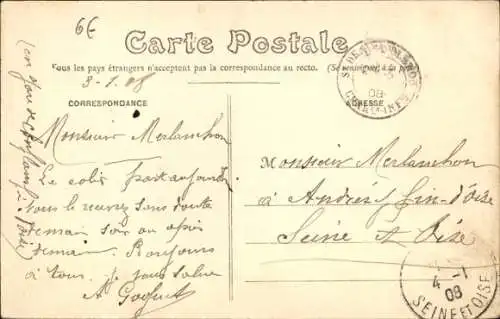 6E
Carte Postale
Tous les pays étrangers n'acceptent pas la correspondance au recto. (Se renseigner à la poste
3-1.08
CORRESPONDANCE
ADRESSE
08
Monsieur Merlanchon
Le colis part aujourd
vous le
demain soir ou après
demain. Bonjours
à tous. je vous salue
A
Monsieur Merlanchon
à Andrésy fin-d'oise
Seine et Oise
4 -1
08
SEINE ET OISE